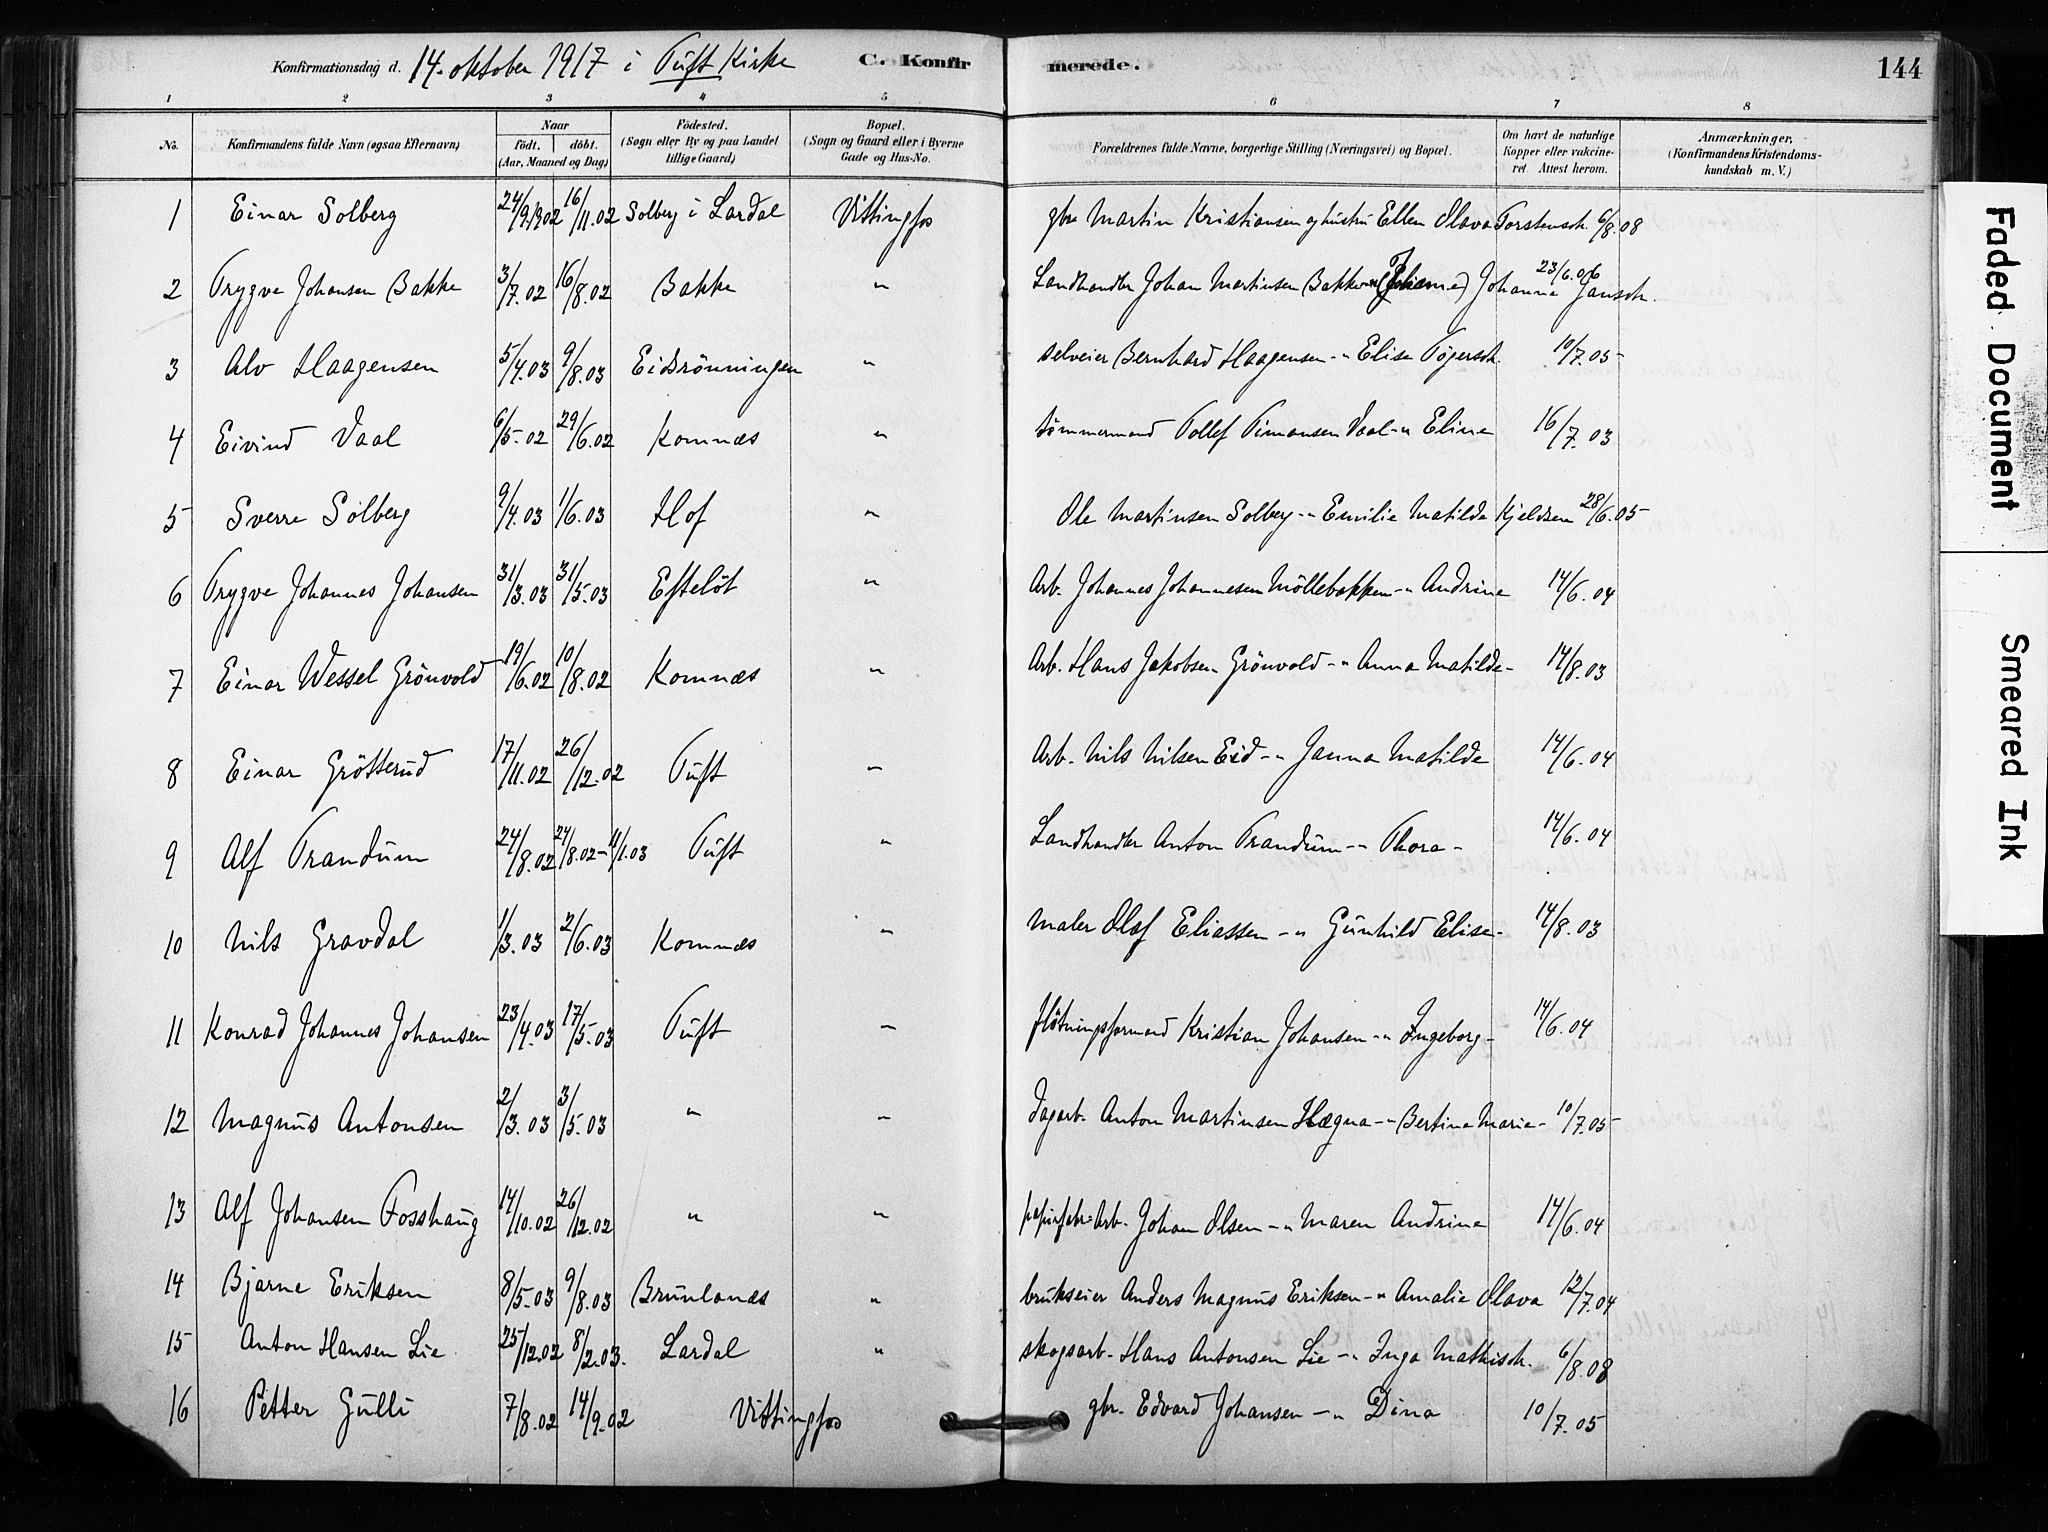 Konfirmationsdag d. 14. oktober 1917 i Tuft Kirke C. Konfirmerede. 144
1 2 3 4 5 6 7 8
No. Konfirmandens fulde Navn (ogsaa Efternavn) Naar födt. döbt. (Aar, Maaned og Dag) Födested. (Sogn eller By og paa Landet tillige Gaard) Bopæl. (Sogn og Gaard eller i Byerne Gade og Hus-No. Forældrenes fulde Navne, borgerlige Stilling (Næringsvei) og Bopæl. Om havt de naturlige Kopper eller vakcineret. Attest herom. Anmærkninger, (Konfirmandens Kristendomskundskab m. V.)
1 Einar Solberg 24/9.1902 16/11.02 Solberg i Lardal Vittingfos gbr Martin Kristiansen og hustru Ellen Olava Torstensdt. 6/8.08
2 Trygve Johansen Bakke 3/7.02 16/8.02 Bakke " Landhandler Johan Martinsen Bakke Johanne Jansdt. 23/6.06
3 Alv Haagensen 5/4.03 9/8.03 Eidsrönningen " selveier Bernhard Haagensen - " Elise Tögersdt. 10/7.05
4 Eivind Vaal 6/5.02 29/6.02 Komnæs " tömmermand Tollef Timansen Vaal - " Eline 16/7.03
5 Sverre Solberg 9/4.03 1/6.03 Hof " Ole Martinsen Solberg - " Emilie Matilde Kjeldsen 28/6.05
6 Trygve Johannes Johansen 31/3.03 31/5.03 Efteløt " Arb. Johannes Johannesen Möllebakken - " Andrine 14/6.04
7 Einar Wessel Grönvold 19/6.02 10/8.02 Komnæs " Arb. Hans Jakobsen Grönvold - " Anna Matilde - 14/8.03
8 Einar Grötterud 17/11.02 26/12.02 Tuft " Arb. Nils Nilsen Eid - " Janna Matilde 14/6.04
9 Alf Trandum 24/8.02 24/8.02 - 11/1.03 Tuft " Landhandler Anton Trandum - " Thora - 14/6.04
10 Nils Gravdal 1/3.03 2/6.03 Komnæs " maler Olaf Eliassen - " Gunhild Elise - 14/8.03
11 Konrad Johannes Johansen 23/4.03 17/5.03 Tuft " flötningsformand Kristian Johansen - " Ingeborg - 14/6.04
12 Magnus Antonsen 2/3.03 3/5.03 " " dagarb. Anton Martinsen Hægna - " Bertine Marie - 10/7.05
13 Alf Johansen Fosshaug 14/10.02 26/12.02 " " papirfabr. Arb. Johan Olsen - " Maren Andrine 14/6.04
14 Bjarne Eriksen 8/5.03 9/8.03 Brunlanæs " brukseier Anders Magnus Eriksen - " Amalie Olava 12/7.04
15 Anton Hansen Lie 25/12.02 8/2.03. Lardal " skogsarb. Hans Antonsen Lie - " Inga Mathisdt. 6/8.08
16 Petter Gulli 7/8.02 14/9.02 Vittingfos gbr. Edvard Johansen - " Dina 10/7.05
Faded Document
Smeared Ink